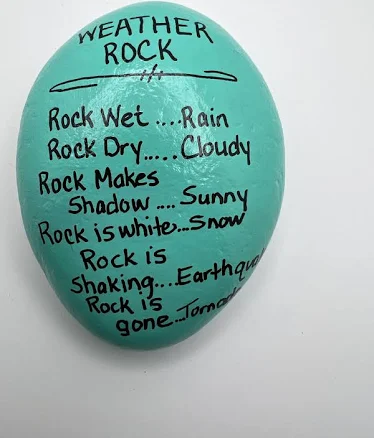 WEATHER
ROCK
Rock Wet ....Rain
Rock Dry.....Cloudy
Rock Makes
Shadow .... Sunny
Rock is white...Snow
Rock is
Shaking...Earthqu
Rock is
gone...